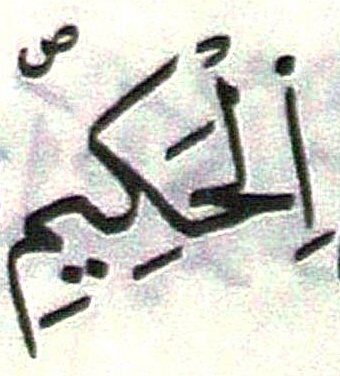 اِلْحَكِيمِ ص